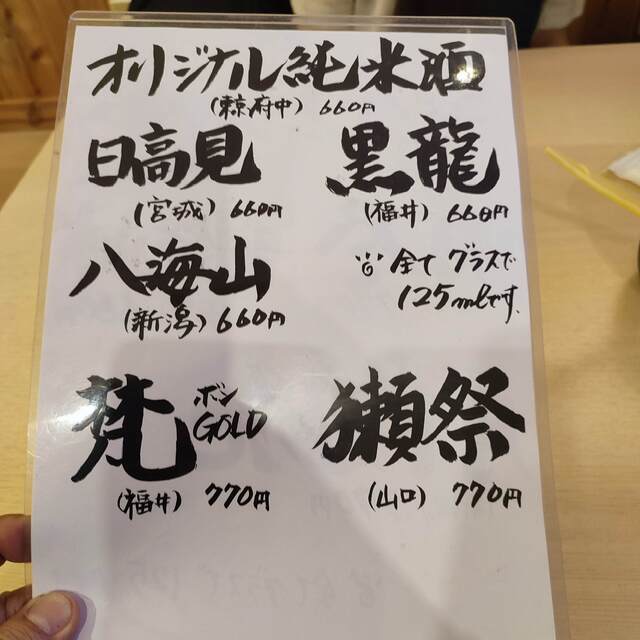 オリジナル純米酒
(東京府中) 660円
日高見
(宮城) 660円
黒龍
(福井) 660円
八海山
(新潟) 660円
全て グラスで
125mlです。
梵 ボン
GOLD
(福井) 770円
獺祭
(山口) 770円